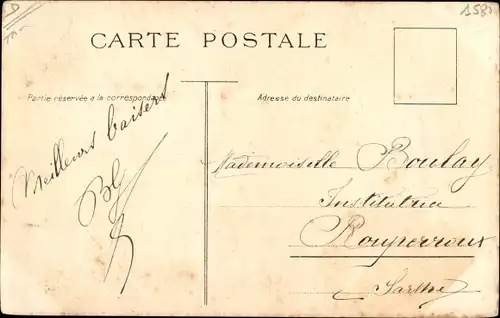 1581
CARTE POSTALE
Partie réservée a la correspondance
Adresse du destinataire
Meilleurs baisers
Mademoiselle Boulay
Institutrice
Rouperroux
Sarthe